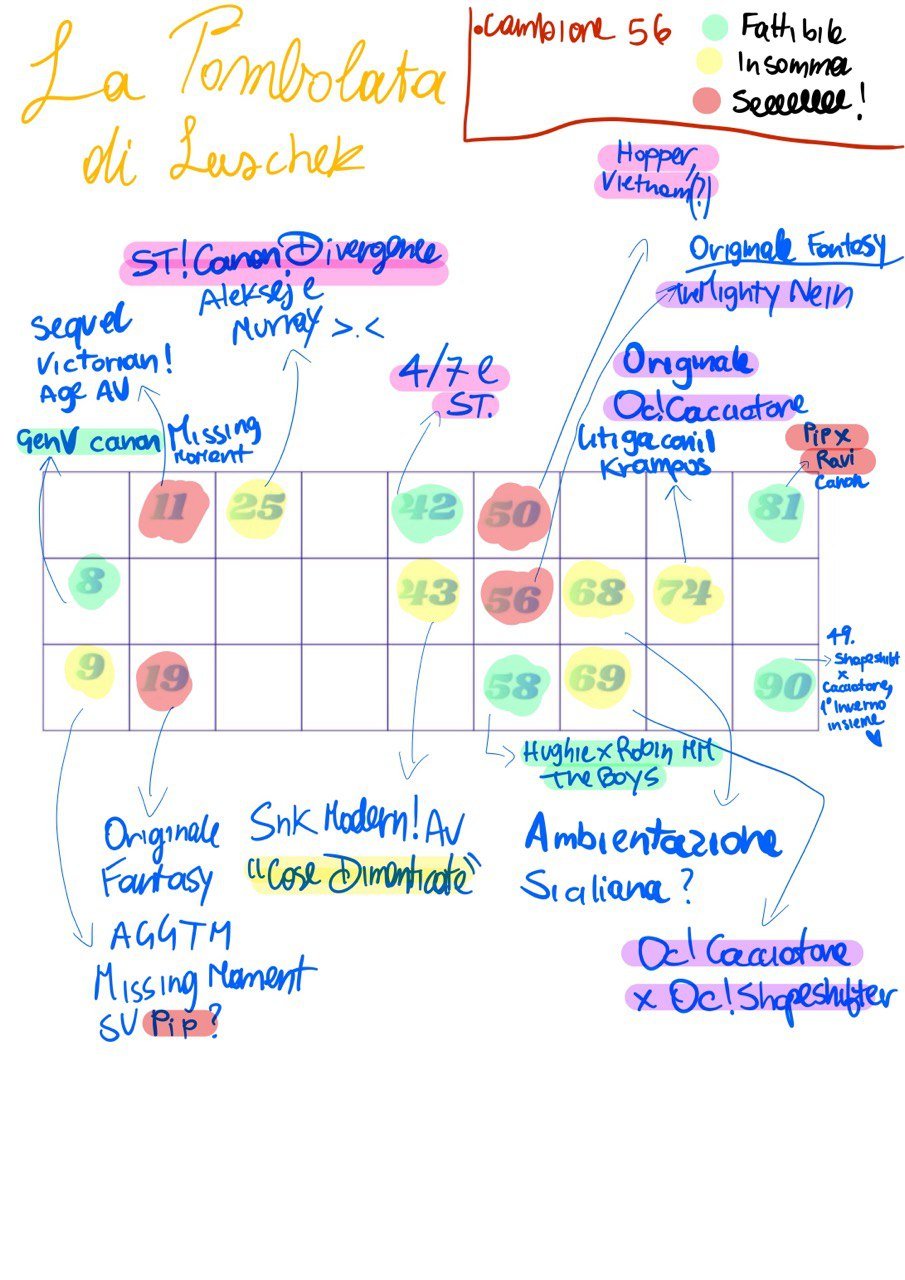 La Tombolata
di Luschek
•Cambione 56
Fattibile
Insomma
Seeeeeee!
Hopper,
Vietnam(?)
Originale Fantasy
Mighty Nein
ST!Canon Divergence
Aleksej e
Murray >.<
Sequel
Victorian!
Age AU
GenV canon
Missing
moment
4/7 e
ST.
Originale
Oc!Cacciatore
litiga con il
Krampus
Pip x
Ravi
Canon
11 25 42 50 81
8 43 56 68 74
9 19 58 69 90
49.
Shapeshift
x
Cacciatore,
1° Inverno
insieme
Hughie x Robin MM
The Boys
Originale
Fantasy
SnK Modern!AU
"Cose Dimenticate"
Ambientazione
Siciliana?
AGGTM
Missing Moment
SU Pip?
Oc! Cacciatore
x Oc!Shapeshifter